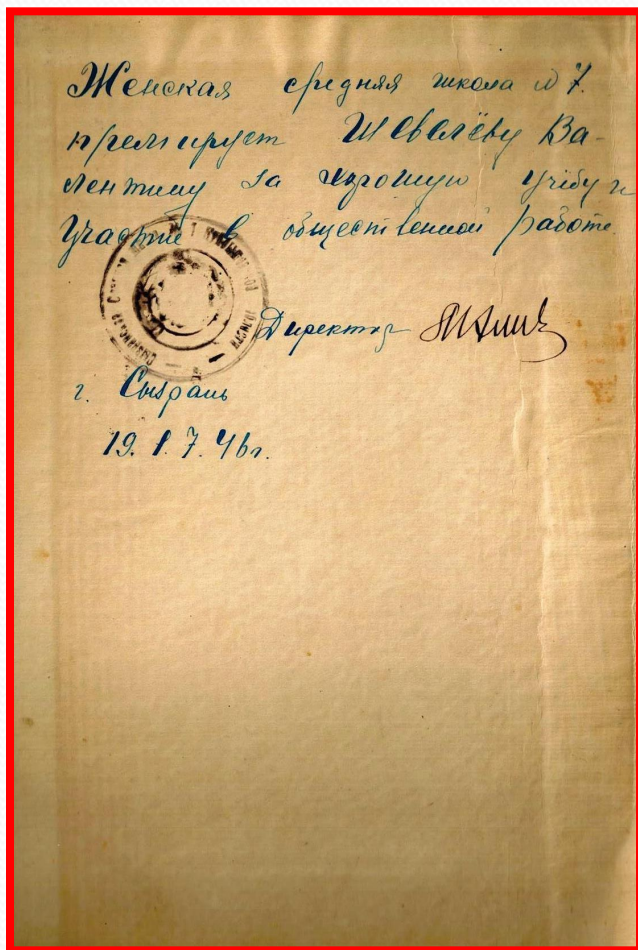 Женская средняя школа № 7.
премирует Шевелёву Ва-
лентину за хорошую учёбу и
участие в общественной работе.
Директор
г. Сызрань
19. 7. 46г.